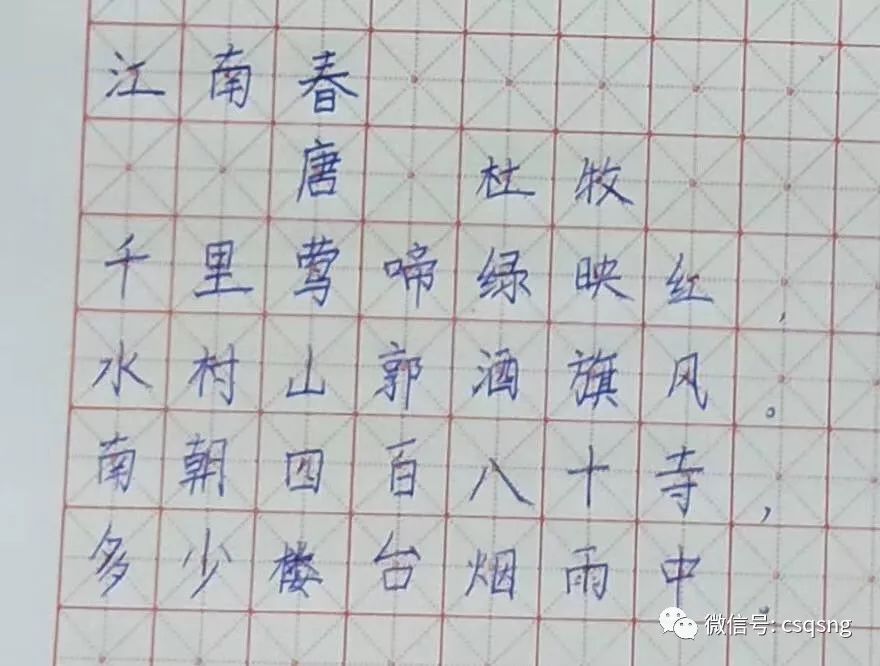 江南春
唐 杜牧
千里莺啼绿映红,
水村山郭酒旗风。
南朝四百八十寺,
多少楼台烟雨中。
微信号: csqsng